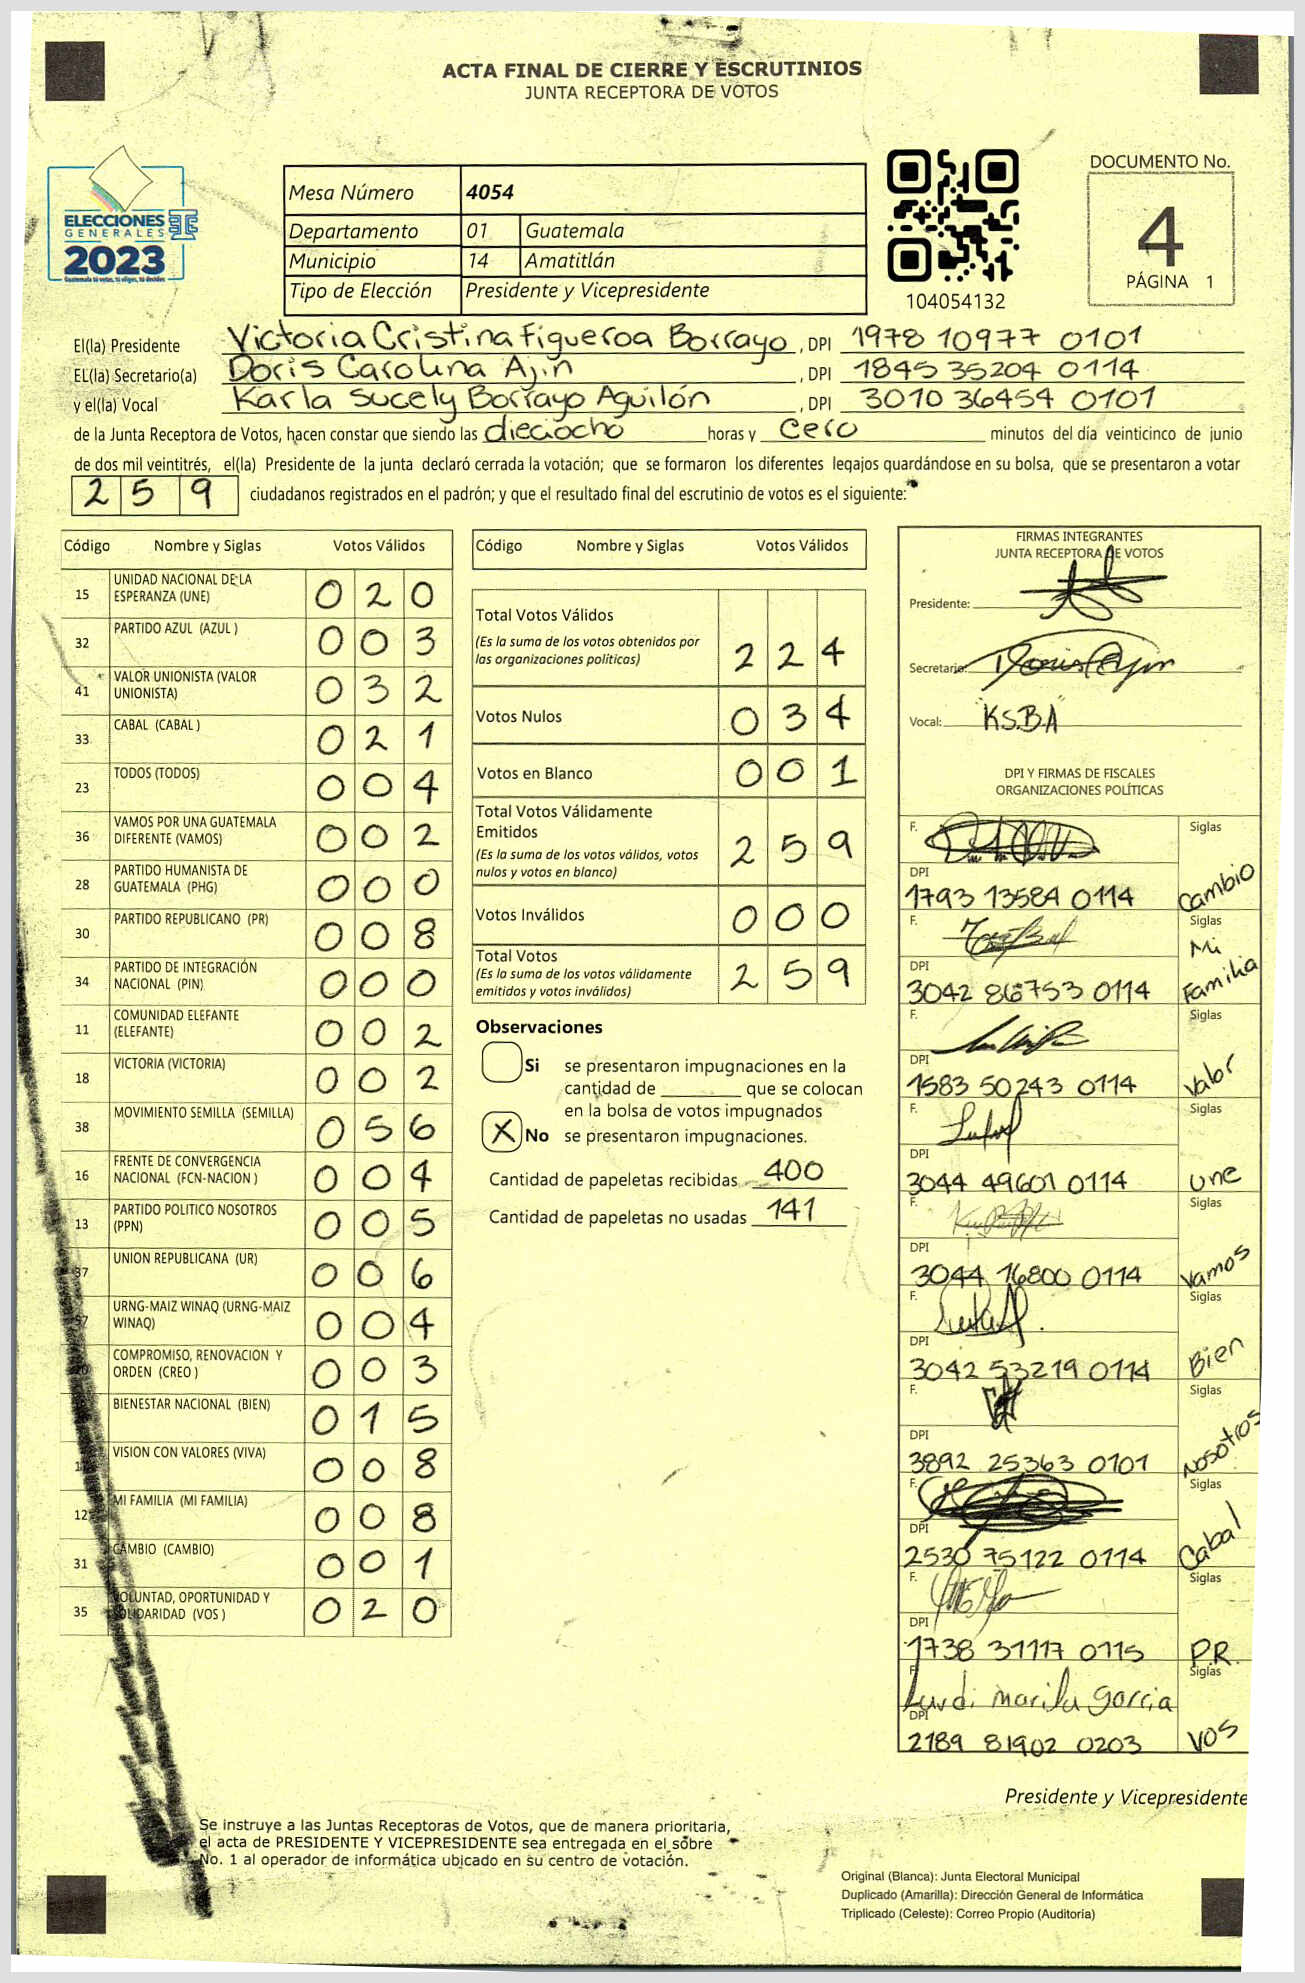 ACTA FINAL DE CIERRE Y ESCRUTINIOS
JUNTA RECEPTORA DE VOTOS
ELECCIONES
GENERALES
2023
Guatemala tú votas, tú eliges, tú decides
Mesa Número 4054
Departamento 01 Guatemala
Municipio 14 Amatitlán
Tipo de Elección Presidente y Vicepresidente
104054132
DOCUMENTO No.
4
PÁGINA 1
El(la) Presidente Victoria Cristina Figueroa Borrayo , DPI 1978 10977 0101
EL(la) Secretario(a) Doris Carolina Ajin , DPI 1845 35204 0114
y el(la) Vocal Karla Sucely Borrayo Aguilón , DPI 3010 36454 0101
de la Junta Receptora de Votos, hacen constar que siendo las dieciocho horas y cero minutos del día veinticinco de junio
de dos mil veintitrés, el(la) Presidente de la junta declaró cerrada la votación; que se formaron los diferentes legajos guardándose en su bolsa, que se presentaron a votar
259 ciudadanos registrados en el padrón; y que el resultado final del escrutinio de votos es el siguiente:
Código Nombre y Siglas Votos Válidos
15 UNIDAD NACIONAL DE LA ESPERANZA (UNE) 020
32 PARTIDO AZUL (AZUL ) 003
41 VALOR UNIONISTA (VALOR UNIONISTA) 032
33 CABAL (CABAL ) 021
23 TODOS (TODOS) 004
36 VAMOS POR UNA GUATEMALA DIFERENTE (VAMOS) 002
28 PARTIDO HUMANISTA DE GUATEMALA (PHG) 000
30 PARTIDO REPUBLICANO (PR) 008
34 PARTIDO DE INTEGRACIÓN NACIONAL (PIN) 000
11 COMUNIDAD ELEFANTE (ELEFANTE) 002
18 VICTORIA (VICTORIA) 002
38 MOVIMIENTO SEMILLA (SEMILLA) 056
16 FRENTE DE CONVERGENCIA NACIONAL (FCN-NACION ) 004
13 PARTIDO POLITICO NOSOTROS (PPN) 005
37 UNION REPUBLICANA (UR) 006
URNG-MAIZ WINAQ (URNG-MAIZ WINAQ) 004
COMPROMISO, RENOVACION Y ORDEN (CREO ) 003
BIENESTAR NACIONAL (BIEN) 015
VISION CON VALORES (VIVA) 008
12 MI FAMILIA (MI FAMILIA) 008
31 CAMBIO (CAMBIO) 001
35 VOLUNTAD, OPORTUNIDAD Y SOLIDARIDAD (VOS ) 020
Código Nombre y Siglas Votos Válidos
Total Votos Válidos
(Es la suma de los votos obtenidos por las organizaciones políticas) 224
Votos Nulos 034
Votos en Blanco 001
Total Votos Válidamente Emitidos
(Es la suma de los votos válidos, votos nulos y votos en blanco) 259
Votos Inválidos 000
Total Votos
(Es la suma de los votos válidamente emitidos y votos inválidos) 259
Observaciones
Si se presentaron impugnaciones en la
cantidad de ________ que se colocan
en la bolsa de votos impugnados
X No se presentaron impugnaciones.
Cantidad de papeletas recibidas 400
Cantidad de papeletas no usadas 141
FIRMAS INTEGRANTES
JUNTA RECEPTORA DE VOTOS
Presidente:
Secretario:
Vocal: "K.S.B.A"
DPI Y FIRMAS DE FISCALES
ORGANIZACIONES POLÍTICAS
F. Siglas
DPI
1793 13584 0114 Cambio
F. Siglas
DPI
3042 86753 0114 Mi Familia
F. Siglas
DPI
1583 50243 0114 Valor
F. Siglas
DPI
3044 49601 0114 Une
F. Siglas
DPI
3044 16800 0114 Vamos
F. Siglas
DPI
3042 53219 0114 Bien
F. Siglas
DPI
3892 25363 0101 Nosotros
F. Siglas
DPI
2530 75122 0114 Cabal
F. Siglas
DPI
1738 31117 0115 P.R.
F. Siglas
DPI
2189 81902 0203 VOS
Presidente y Vicepresidente
Se instruye a las Juntas Receptoras de Votos, que de manera prioritaria,
el acta de PRESIDENTE Y VICEPRESIDENTE sea entregada en el sobre
No. 1 al operador de informática ubicado en su centro de votación.
Original (Blanca): Junta Electoral Municipal
Duplicado (Amarilla): Dirección General de Informática
Triplicado (Celeste): Correo Propio (Auditoría)